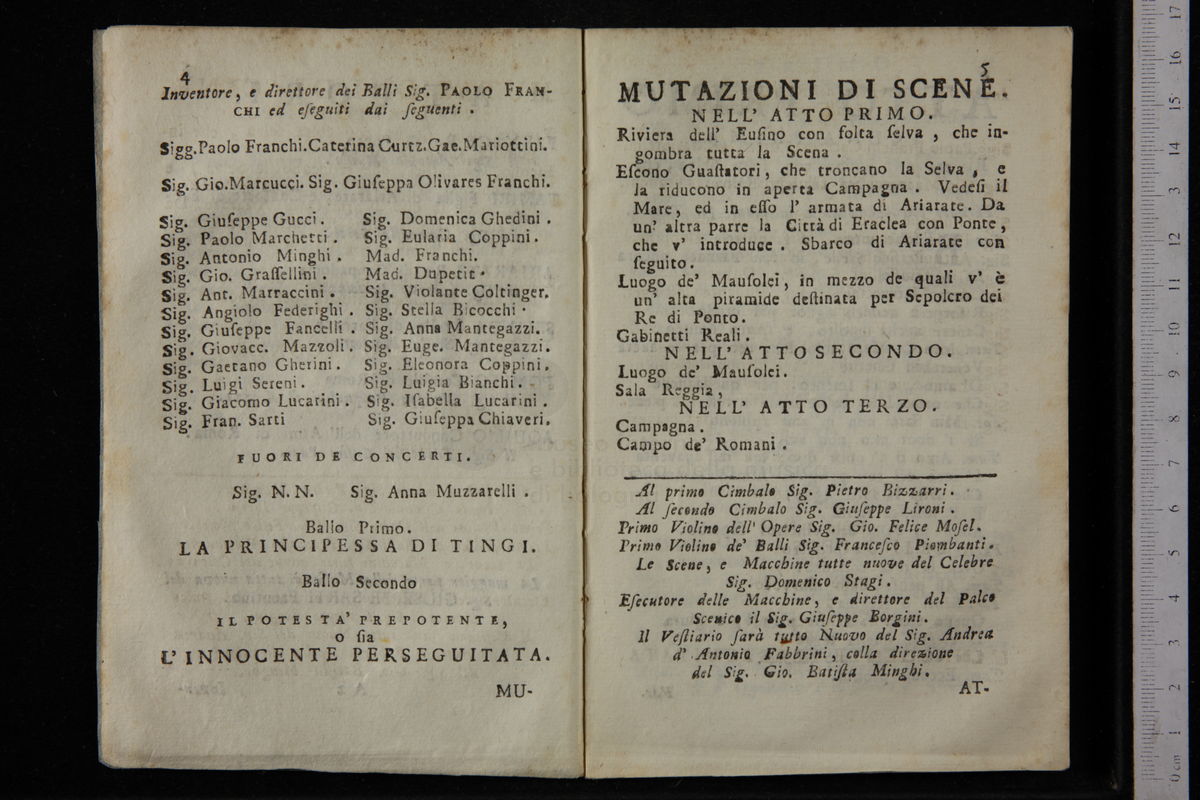 4
Inventore, e direttore dei Balli Sig. PAOLO FRAN-
CHI ed eſeguiti dai ſeguenti .
Sigg.Paolo Franchi.Caterina Curtz.Gae.Mariottini.
Sig. Gio.Marcucci. Sig. Giuſeppa Olivares Franchi.
Sig. Giuſeppe Gucci. Sig. Domenica Ghedini .
Sig. Paolo Marchetti . Sig. Eularia Coppini.
Sig. Antonio Minghi . Mad. Franchi.
Sig. Gio. Graſſellini . Mad. Dupetit .
Sig. Ant. Marraccini . Sig. Violante Coltinger.
Sig. Angiolo Federighi . Sig. Stella Bicocchi .
Sig. Giuſeppe Fancelli . Sig. Anna Mantegazzi.
Sig. Giovacc. Mazzoli . Sig. Euge. Mantegazzi.
Sig. Gaetano Gherini. Sig. Eleonora Coppini.
Sig. Luigi Sereni. Sig. Luigia Bianchi.
Sig. Giacomo Lucarini . Sig. Iſabella Lucarini .
Sig. Fran. Sarti Sig. Giuſeppa Chiaveri.
FUORI DE CONCERTI.
Sig. N. N. Sig. Anna Muzzarelli .
Ballo Primo.
LA PRINCIPESSA DI TINGI.
Ballo Secondo
IL POTESTA' PREPOTENTE,
o ſia
L'INNOCENTE PERSEGUITATA.
MU-
5
MUTAZIONI DI SCENE.
NELL' ATTO PRIMO.
Riviera dell' Euſino con folta ſelva , che in-
gombra tutta la Scena .
Eſcono Guaſtatori, che troncano la Selva , e
la riducono in aperta Campagna . Vedeſi il
Mare, ed in eſſo l' armata di Ariarate. Da
un' altra parre la Città di Eraclea con Ponte,
che v' introduce . Sbarco di Ariarate con
ſeguito.
Luogo de' Mauſolei, in mezzo de quali v' è
un' alta piramide deſtinata per Sepolcro dei
Re di Ponto.
Gabinetti Reali.
NELL' ATTO SECONDO.
Luogo de' Mauſolei.
Sala Reggia,
NELL' ATTO TERZO.
Campagna .
Campo de' Romani .
Al primo Cimbalo Sig. Pietro Bizzarri.
Al ſecondo Cimbalo Sig. Giuſeppe Lironi.
Primo Violino dell' Opere Sig. Gio. Felice Moſel.
Primo Violino de' Balli Sig. Franceſco Piombanti.
Le Scene, e Macchine tutte nuove del Celebre
Sig. Domenico Stagi.
Eſecutore delle Macchine, e direttore del Palco
Scenico il Sig. Giuſeppe Borgini.
Il Veſtiario ſarà tutto Nuovo del Sig. Andrea
d' Antonio Fabbrini, colla direzione
del Sig. Gio. Batiſta Minghi.
AT-
0 cm 1 2 3 4 5 6 7 8 9 10 11 12 13 14 15 16 17